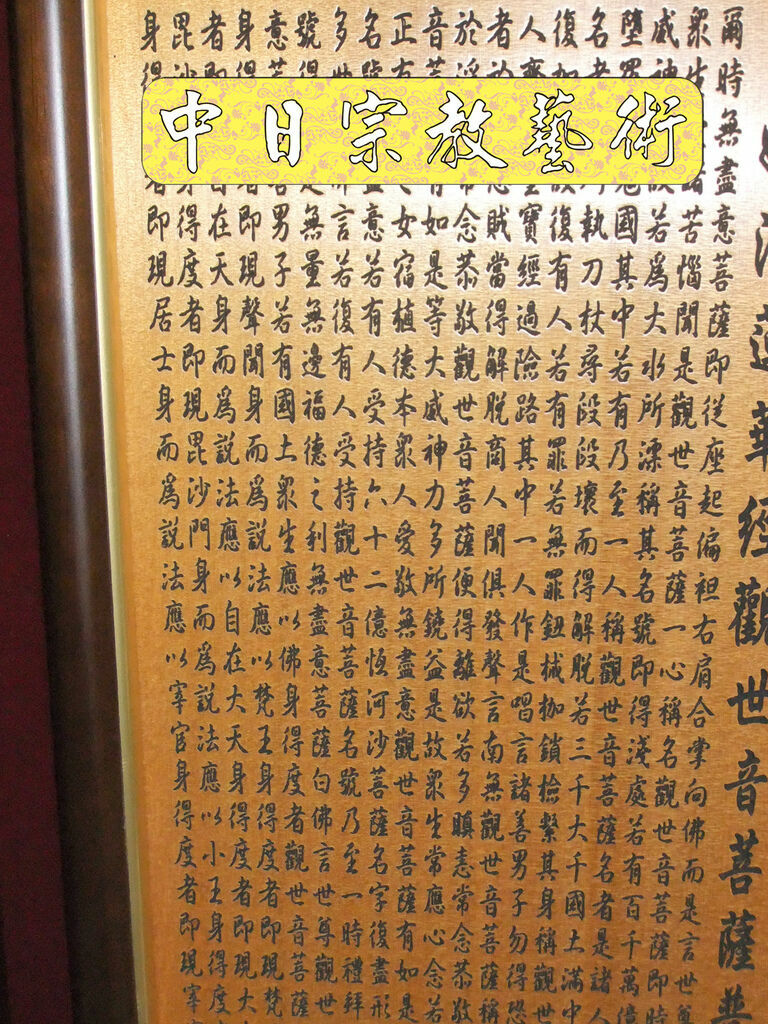 中日宗教藝術
法蓮華經觀世音菩薩普
爾時無盡意菩薩即從座起偏袒右肩合掌向佛而是言世尊
眾生諸苦惱聞是觀世音菩薩一心稱名觀世音菩薩即時
威神故若為大水所漂稱其名號即得淺處若有百千萬億
墮羅鬼國其中若有乃至一人稱觀世音菩薩名者是諸人
名者執刀杖尋段段壞而得解脫若三千大千國土滿中
復加復有人若有罪若無罪鈕械枷鎖檢繫其身稱觀世
人齎寶經過險路其中一人作是唱言諸善男子勿得恐
者於賊當得解脫商人聞俱發聲言南無觀世音菩薩稱
於婬常念恭敬觀世音菩薩便得離欲若多瞋恚常念恭敬
音菩有如是等大威神力多所饒益是故眾生常應心念若
正有女宿植德本眾人愛敬無盡意觀世音菩薩有如是
名號盡意若有人受持六十二億恆河沙菩薩名字復盡形
多世佛言若復有人受持觀世音菩薩名號乃至一時禮拜
號得是無量無邊福德之利無盡意菩薩白佛言世尊觀世
意菩善男子若有國土眾生應以佛身得度者觀世音菩薩
身得者即現聲聞身而為說法應以梵王身得度者即現梵
者即自在天身而為說法應以自在大天身得度者即現大
毘沙身得度者即現毘沙門身而為說法應以小王身得度
身得者即現居士身而為說法應以宰官身得度者即現宰